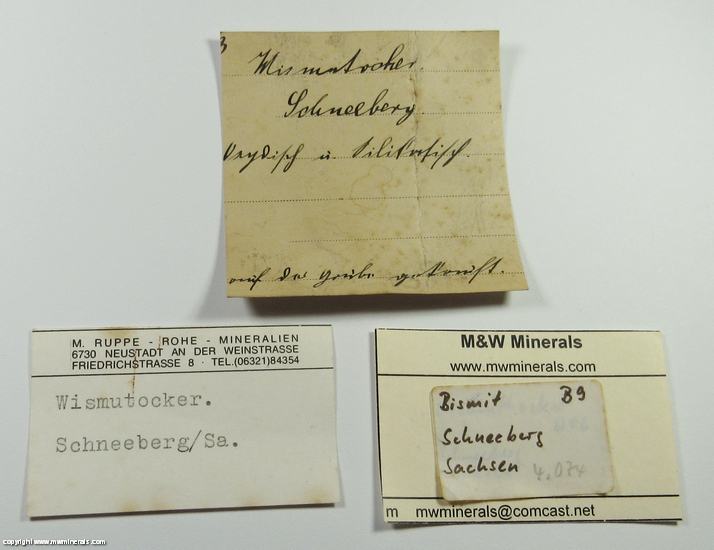 3
Wismutocker.
Schneeberg.
Oxydisch u. Silikatisch.
auf der Grube gekauft.
M. RUPPE - ROHE - MINERALIEN
6730 NEUSTADT AN DER WEINSTRASSE
FRIEDRICHSTRASSE 8 · TEL.(06321)84354
Wismutocker.
Schneeberg/Sa.
M&W Minerals
www.mwminerals.com
Bismit B9
Schneeberg
Sachsen 4.074
m mwminerals@comcast.net
copyright www.mwminerals.com
www.mwminerals.com